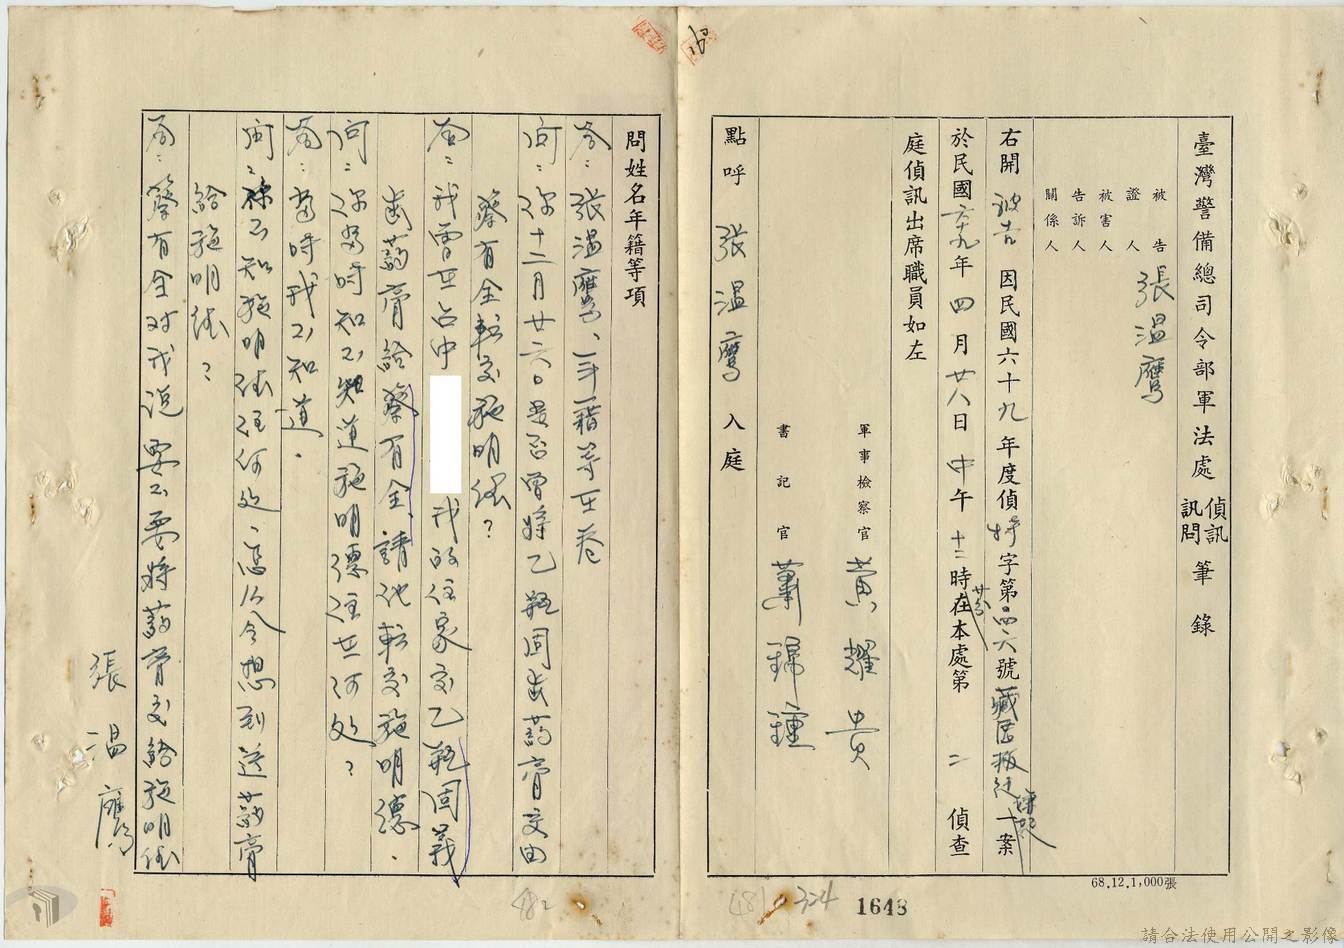 臺灣警備總司令部軍法處偵訊訊問筆錄
被告 張温鷹
證人
被害人
告訴人
關係人
右開被告因民國六十九年度偵特字第四六號藏匿叛徒等罪一案
於民國六十九年四月廿八日中午十二時廿分在本處第二偵查
庭偵訊出席職員如左
軍事檢察官 黃耀貴
書記官 蕭錦鍾
點呼 張温鷹 入庭
問姓名年籍等項
答：張温鷹、年籍等在卷
問：你十二月廿六日是否曾將乙瓶固齒葯膏交由
蔡有全轉交施明德？
答：我曾在台中 我的住家交乙瓶固義
齒葯膏給蔡有全、請他轉交施明德．
問：你當時知不知道施明德住在何处？
答：當時我不知道．
問：你不知施明德住何处，怎么会想到送葯膏
給施明德？
答：蔡有全对我说 要不要將葯膏交給施明德
張温鷹
68.12.1,000張
160
482
481
324
1648
請合法使用公開之影像